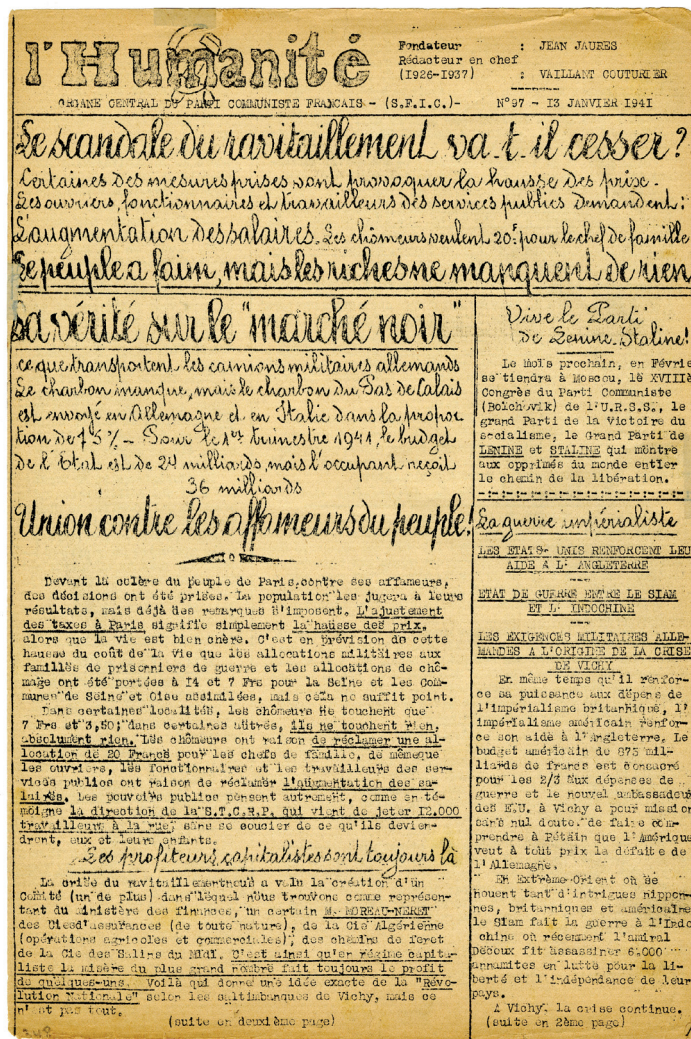 l'Humanité
Fondateur : JEAN JAURES
Rédacteur en chef
(1926-1937) : VAILLANT COUTURIER
ORGANE CENTRAL DU PARTI COMMUNISTE FRANCAIS - (S.F.I.C.)- N°97 - 13 JANVIER 1941
Le scandale du ravitaillement va-t-il cesser ?
Certaines des mesures prises vont provoquer la hausse des prix.
Les ouvriers, fonctionnaires et travailleurs des services publics demandent :
L'augmentation des salaires. Les chômeurs veulent 20f pour le chef de famille
Le peuple a faim, mais les riches ne manquent de rien
La vérité sur le "marché noir"
ce que transportent les camions militaires allemands
Le charbon manque, mais le charbon du Pas de Calais
est envoyé en Allemagne et en Italie dans la propor
tion de 75 % - Pour le 1er trimestre 1941, le budget
de l'Etat est de 24 milliards, mais l'occupant reçoit
36 milliards
Union contre les affameurs du peuple !
Devant la colère du peuple de Paris, contre ses affameurs,
des décisions ont été prises. La population les jugera à leurs
résultats, mais déjà des remarques s'imposent. L'ajustement
des taxes à Paris signifie simplement la hausse des prix,
alors que la vie est bien chère. C'est en prévision de cette
hausse du coût de la Vie que les allocations militaires aux
familles de prisonniers de guerre et les allocations de chô-
mage ont été portées à 14 et 7 Frs pour la Seine et les Com-
munes de Seine et Oise assimilées, mais cela ne suffit point.
Dans certaines localités, les chômeurs ne touchent que
7 Frs et 3,50; dans certaines autres, ils ne touchent rien,
absolument rien. Les chômeurs ont raison de réclamer une al-
location de 20 Francs pour les chefs de famille, de même que
les ouvriers, les fonctionnaires et les travailleurs des ser-
vices publics ont raison de réclamer l'augmentation des sa-
laires. Les pouvoirs publics pensent autrement, comme en té-
moigne la direction de la S.T.C.R.P. qui vient de jeter 12.000
travailleurs à la rue, sans se soucier de ce qu'ils devien-
dront, eux et leurs enfants.
Les profiteurs capitalistes sont toujours là
La crise du ravitaillement nous a valu la création d'un
Comité (un de plus) dans lequel nous trouvons comme représen-
tant du ministère des finances, un certain M. MOREAU-NERET
des Cies d'assurances (de toute nature), de la Cie Algérienne
(opérations agricoles et commerciales), des chemins de fer et
de la Cie des Salins du Midi. C'est ainsi qu'en régime capita-
liste la misère du plus grand nombre fait toujours le profit
de quelques-uns. Voilà qui donne une idée exacte de la "Révo-
lution Nationale" selon les saltimbanques de Vichy, mais ce
n'est pas tout.
(suite en deuxième page)
Vive le Parti
de Lenine, Staline !
Le Mois prochain, en Février
se tiendra à Moscou, le XVIIIè
Congrès du Parti Communiste
(Bolchevik) de l'U.R.S.S., le
grand Parti de la Victoire du
socialisme, le Grand Parti de
LENINE et STALINE qui montre
aux opprimés du monde entier
le chemin de la libération.
La guerre impérialiste
LES ETATS-UNIS RENFORCENT LEU
AIDE A L'ANGLETERRE
ETAT DE GUERRE ENTRE LE SIAM
ET L'INDOCHINE
LES EXIGENCES MILITAIRES ALLE-
MANDES A L'ORIGINE DE LA CRISE
DE VICHY
En même temps qu'il renfor-
ce sa puissance aux dépens de
l'impérialisme britannique, l'
impérialisme américain renfor-
ce son aide à l'Angleterre. Le
budget américain de 875 mil-
liards de francs est consacré
pour les 2/3 aux dépenses de
guerre et le nouvel ambassadeur
des EU, à Vichy a pour mission
sans nul doute, de faire com-
prendre à Pétain que l'Amérique
veut à tout prix la défaite de
l'Allemagne.
En Extrême-Orient où se
nouent tant d'intrigues nippon-
nes, britanniques et américaine
le Siam fait la guerre à l'Indo
chine où récemment l'amiral
Decoux fit assassiner 6.000
annamites en lutte pour la li-
berté et l'indépendance de leur
pays.
A Vichy, la crise continue.
(suite en 2ème page)